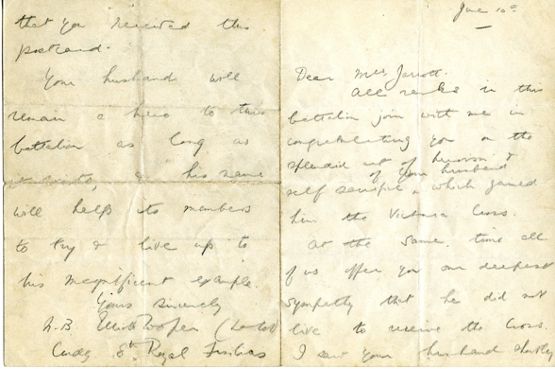 June 10th
Dear Mrs Jarratt.
All ranks in this
battalion join with me in
congratulating you on the
splendid act of heroism &
self sacrifice of your husband
which gained
him the Victoria Cross.
At the same time all
of us offer you our deepest
sympathy that he did not
live to receive the Cross.
I saw your husband shortly
that you received this
postcard.
Your husband will
remain a hero to this
battalion as long as
it exists, & his name
will help its members
to try & live up to
his magnificent example.
Yours sincerely
N.B Elliott Cooper
Cmdg 8th Royal Fusiliers